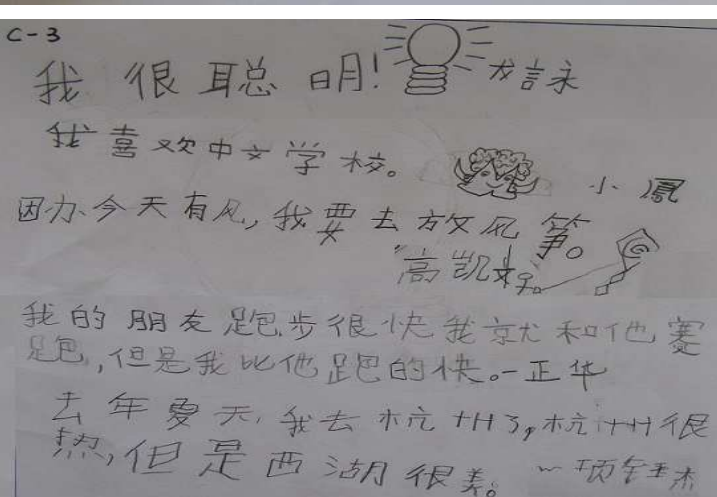 C-3
我很聪明!
我喜欢中文学校。 小凤
因为今天有风,我要去放风筝。
高凯
我的朋友跑步很快我就和他赛
跑,但是我比他跑的快。-正华
去年夏天,我去杭州了,杭州很
热,但是西湖很美。~项